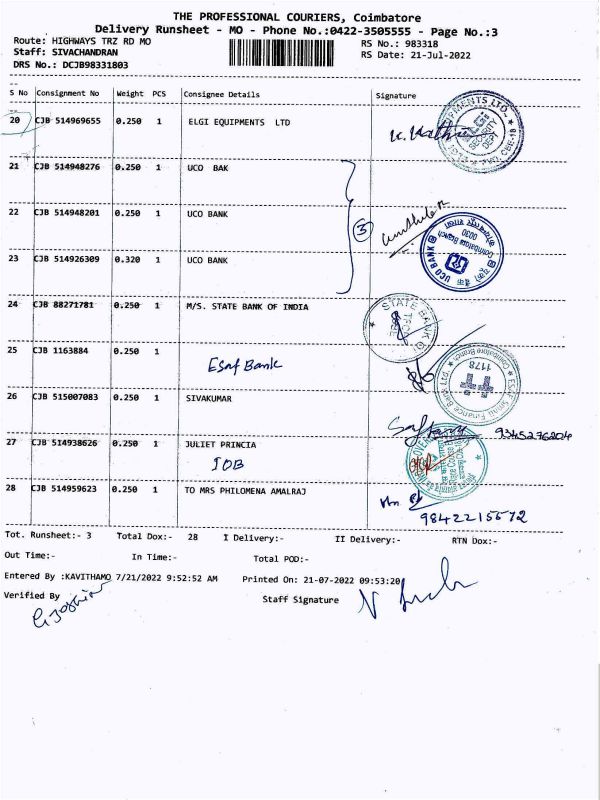 THE PROFESSIONAL COURIERS, Coimbatore
Delivery Runsheet - MO - Phone No.:0422-3505555 - Page No.:3
Route: HIGHWAYS TRZ RD MO
RS No.: 983318
Staff: SIVACHANDRAN
RS Date: 21-Jul-2022
DRS No.: DCJB98331803
S No Consignment No Weight PCS Consignee Details Signature
20 CJB 514969655 0.250 1 ELGI EQUIPMENTS LTD
21 CJB 514948276 0.250 1 UCO BAK
22 CJB 514948201 0.250 1 UCO BANK
3
23 CJB 514926309 0.320 1 UCO BANK
UCO BANK
Coimbatore Branch
0030
24 CJB 88271781 0.250 1 M/S. STATE BANK OF INDIA
STATE BANK
25 CJB 1163884 0.250 1
Esaf Bank
ESAF Small Finance Bank Ltd.
Coimbatore Branch
1178
26 CJB 515007083 0.250 1 SIVAKUMAR
9345276204
27 CJB 514938626 0.250 1 JULIET PRINCIA
IOB
28 CJB 514959623 0.250 1 TO MRS PHILOMENA AMALRAJ
9842215572
Tot. Runsheet:- 3 Total Dox:- 28 I Delivery:- II Delivery:- RTN Dox:-
Out Time:- In Time:- Total POD:-
Entered By :KAVITHAMO 7/21/2022 9:52:52 AM Printed On: 21-07-2022 09:53:20
Verified By
Staff Signature